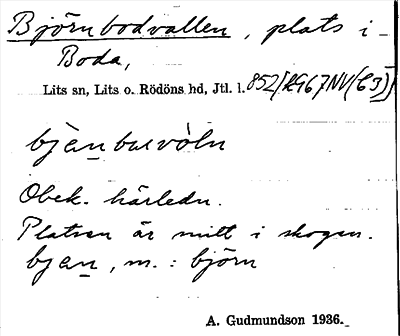 Björnbodvallen, plats i
Boda,
Lits sn, Lits o. Rödöns hd, Jtl. l. 852/RG67NV(C3)
bjanbuvòln
Obek. härledn.
Platsen är mitt i skogen.
bjan, m. : björn
A. Gudmundson 1936.